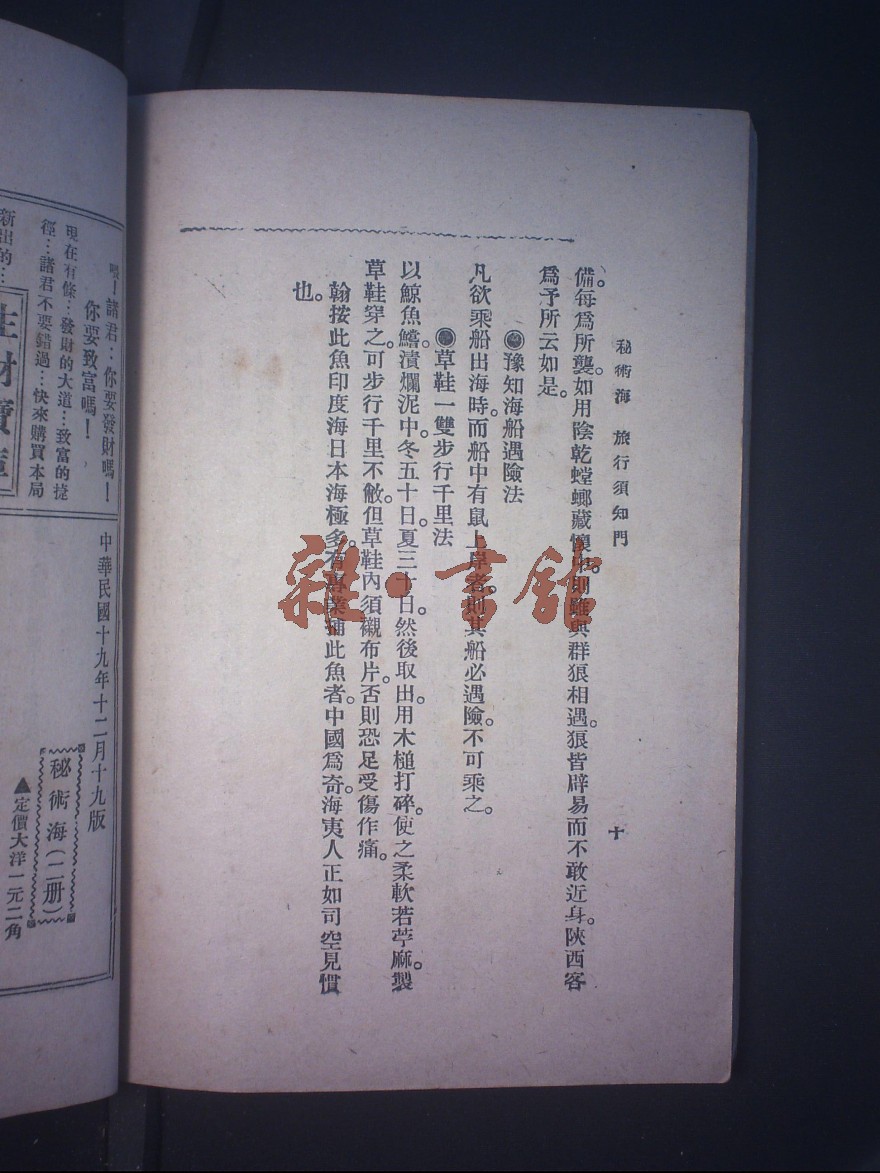 秘術海 旅行須知門
十
備。每爲所襲。如用陰乾螳螂藏懷中。則雖與群狼相遇。狼皆辟易而不敢近身。陝西客
爲予所云如是。
◉豫知海船遇險法
凡欲乘船出海時。而船中有鼠上岸者。則其船必遇險。不可乘之。
◉草鞋一雙步行千里法
以鯨魚鰭漬爛泥中。冬五十日。夏三十日。然後取出。用木槌打碎。使之柔軟若苧麻。製
草鞋穿之。可步行千里不敝。但草鞋內須襯布片。否則恐足受傷作痛。
翰按此魚印度海日本海極多。有專業捕此魚者。中國爲奇。海夷人正如司空見慣
也。
雜·書館
中華民國十九年十二月十九版
秘術海(二册)
▲定價大洋一元二角
喂!諸君‥你要發財嗎!
你要致富嗎!
現在有條‥發財的大道‥‥致富的捷
徑‥‥諸君不要錯過‥‥快來購買本局
新出的‥‥
生財寶庫